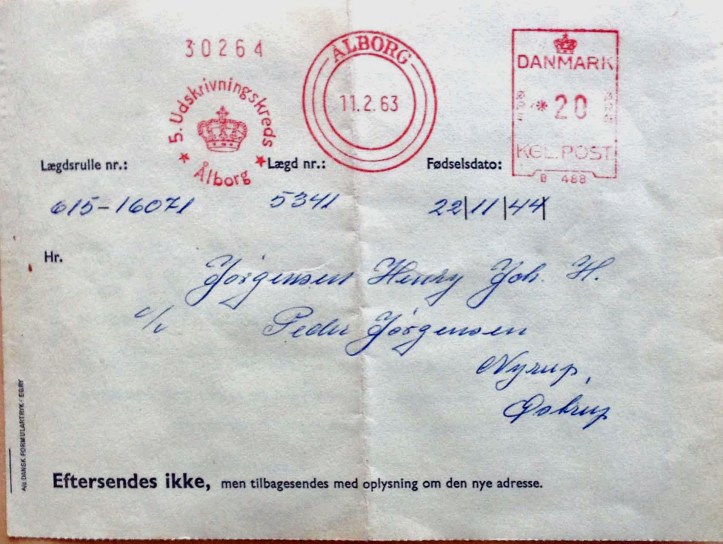 30264
5. Udskrivningskreds
* Ålborg *
ÅLBORG
11.2.63
DANMARK
* 20
KGL. POST
B 488
Lægdsrulle nr.: Lægd nr.: Fødselsdato:
615-16071 5341 22/11/44
Hr.
Jørgensen Henry Joh. H.
c/o Peder Jørgensen
Nyrup,
Østrup
A/S DANSK FORMULARTRYK · EGBY
Eftersendes ikke, men tilbagesendes med oplysning om den nye adresse.